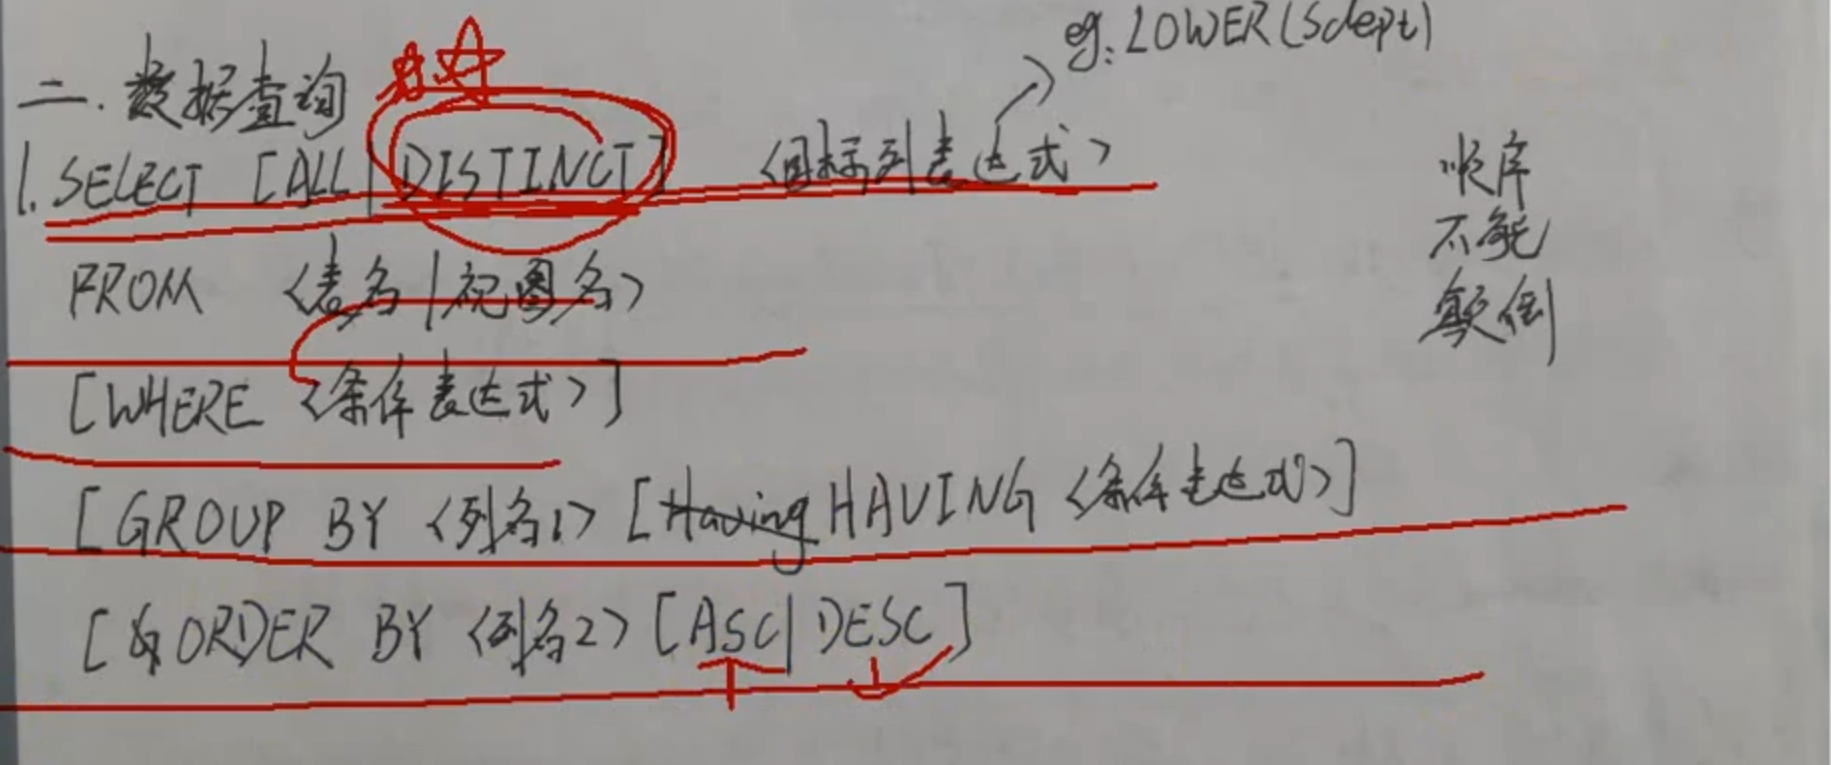 eg: LOWER(Sdept)
二.数据查询
1. SELECT [ALL|DISTINCT] <目标列表达式>
FROM <表名|视图名>
[WHERE <条件表达式>]
[GROUP BY <列名1> [Having HAVING <条件表达式>]
[ORDER BY <列名2> [ASC|DESC]
顺序
不能
颠倒